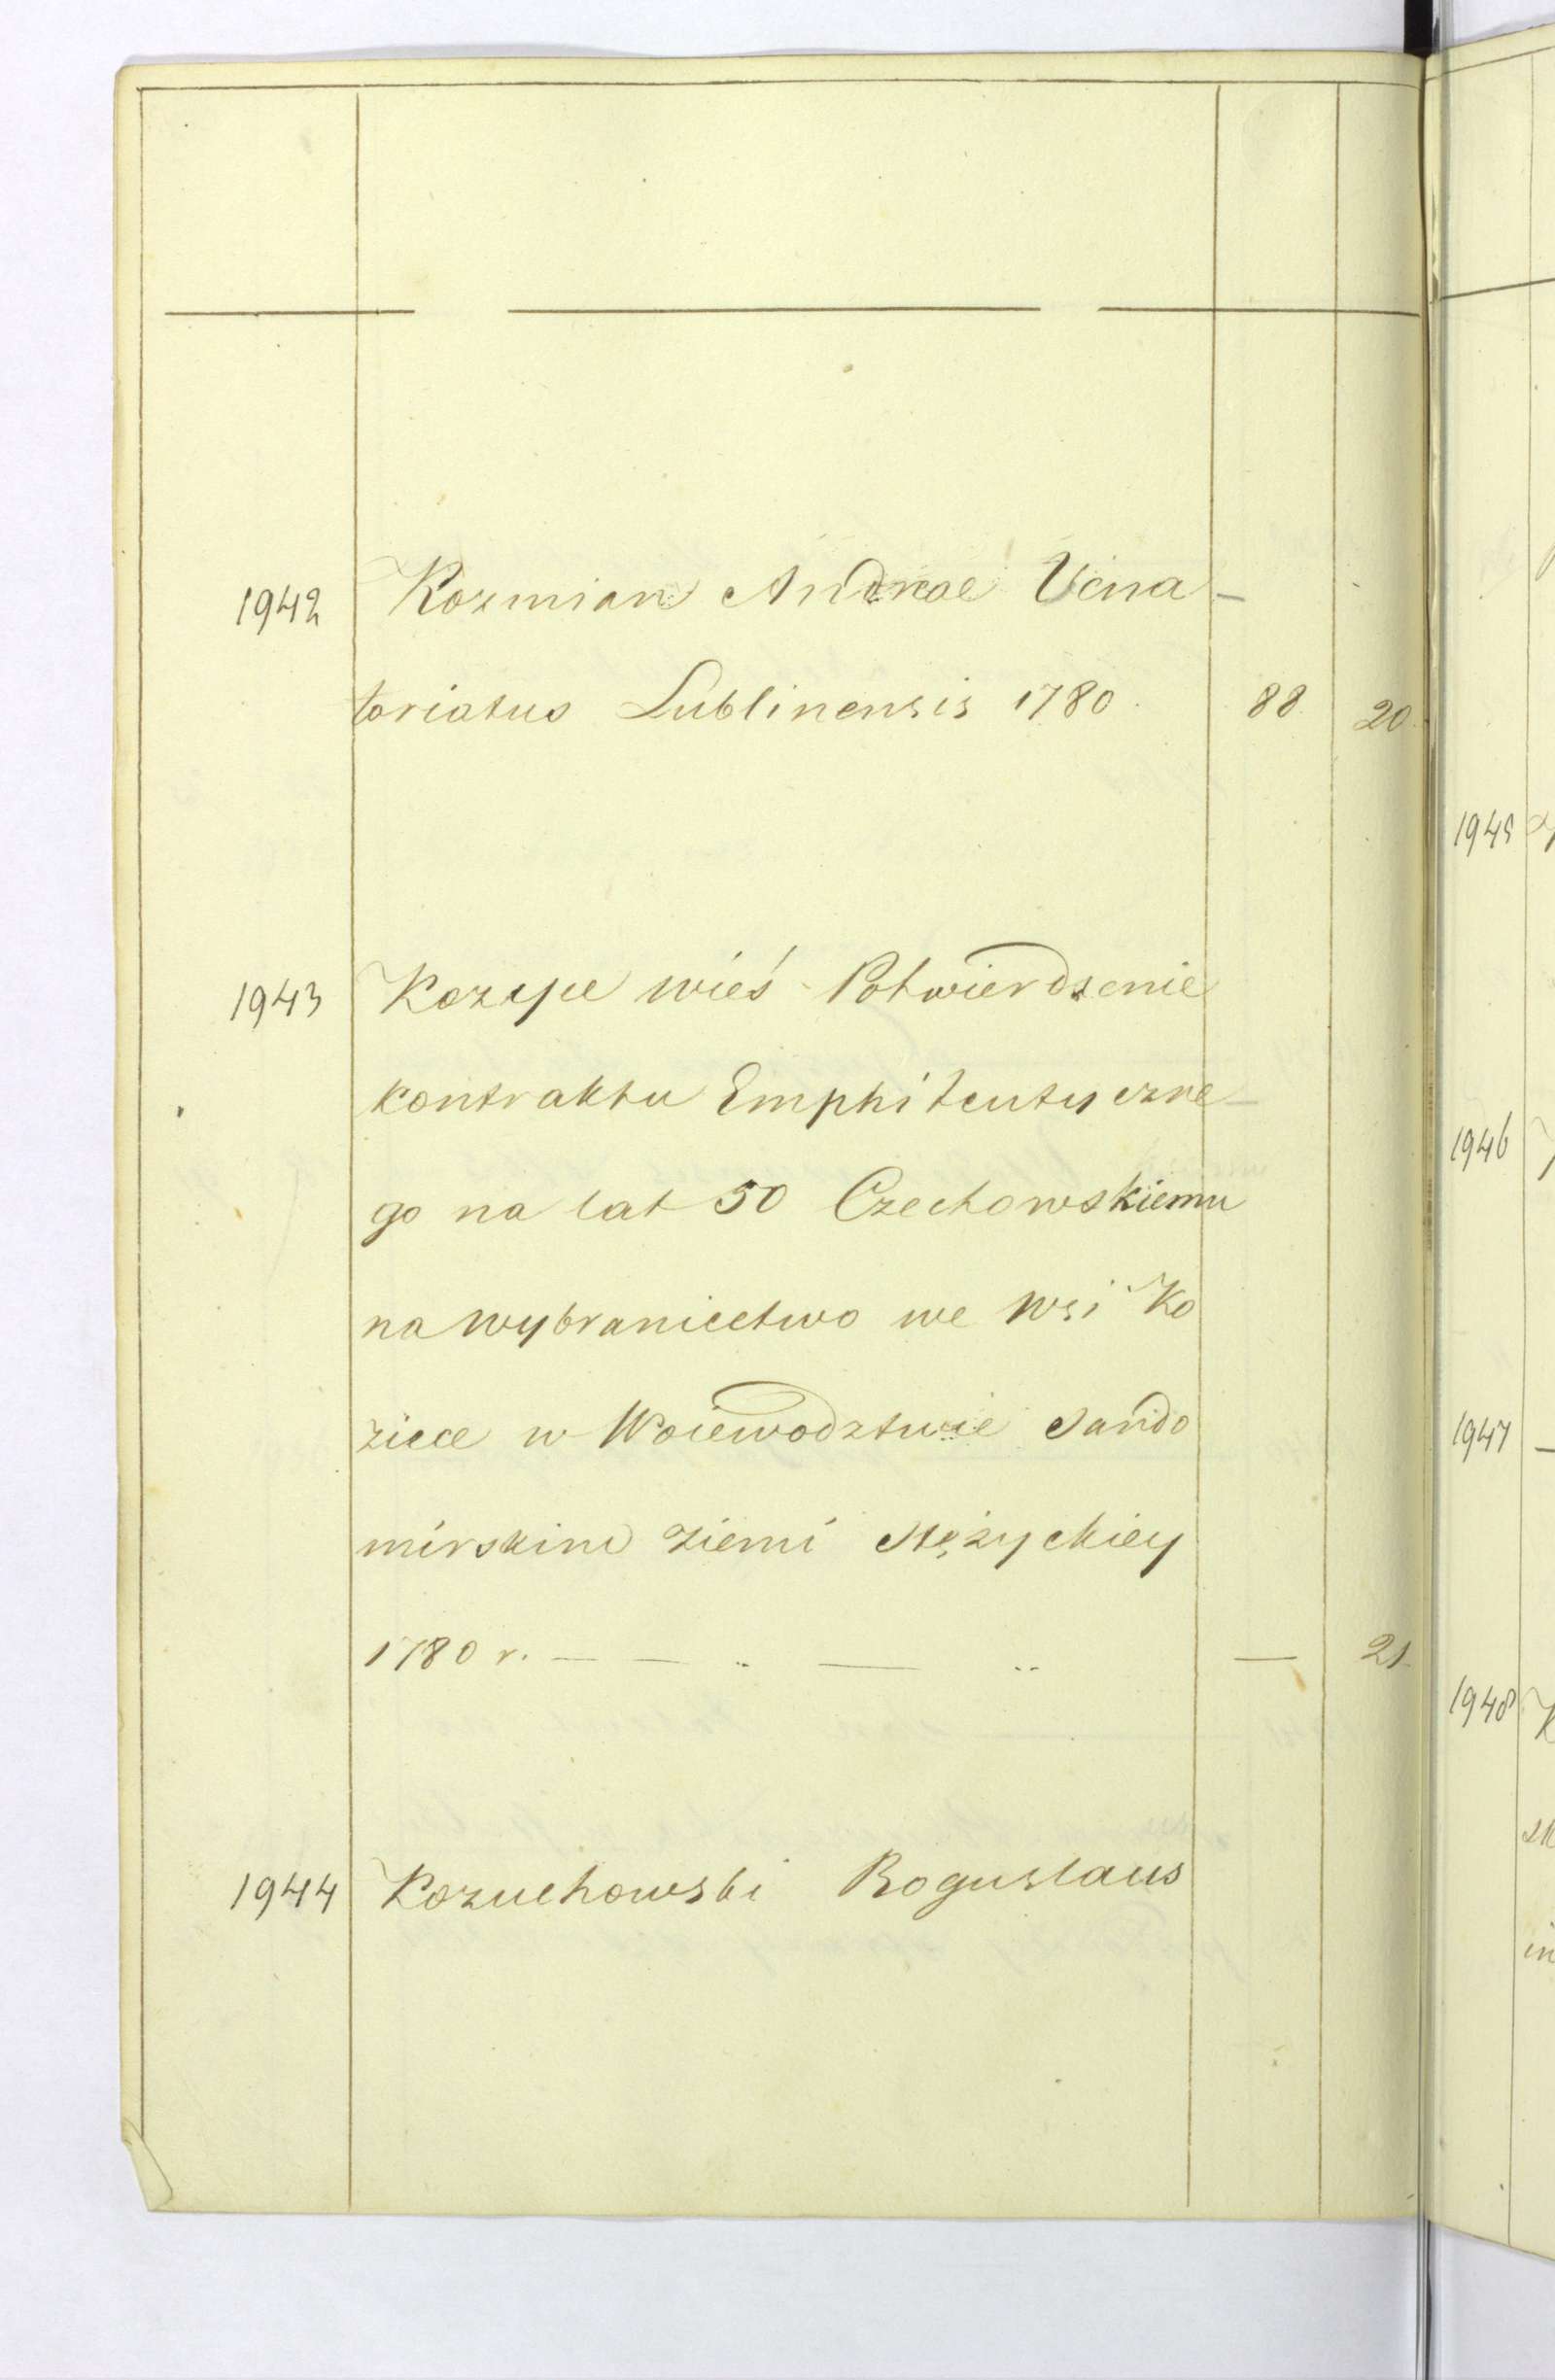 1942 Kozmian Andreae Vena-
toriatus Lublinensis 1780. 88. 20.
1943 Kozyce wieś Potwierdzenie
kontraktu Emphiteutyczne-
go na lat 50 Czechowskiemu
na wybraniectwo we wsi Ko
ziece w Woiewodztwie Sando
mirskim Ziemi Stężyckiey
1780 r. — — .. — .. — 21.
1944 Kozuchowski Boguslaus
1945
1946
1947 —
1948 K
in